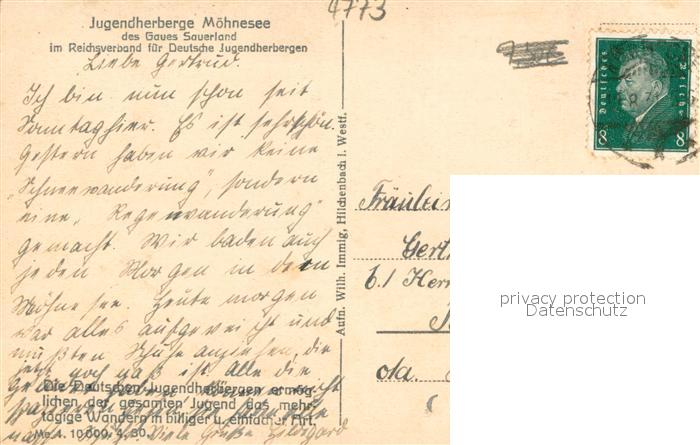 4773
Jugendherberge Möhnesee
des Gaues Sauerland
im Reichsverband für Deutsche Jugendherbergen
Liebe Gertrud.
Ich bin nun schon seit
Sonntag hier. Es ist sehr schön.
Gestern haben wir keine
"Schneewanderung", sondern
eine "Regenwanderung"
gemacht. Wir baden auch
jeden Morgen in dem
Möhnesee. Heute morgen
war alles aufgeweicht und
mußten Schuhe anziehen, die
jetzt noch naß ist. Alle die
Die Deutschen Jugendherbergen ermög-
lichen der gesamten Jugend das mehr-
tägige Wandern in billiger u. einfacher Art.
Me. A. 10000. 4. 30.
Viele Grüße Hildegard
Aufn. Wilh. Immig, Hilchenbach i. Westf.
Deutsches Reich
8 8
Fräulein
Gert
b./ Herr
da.
privacy protection
Datenschutz